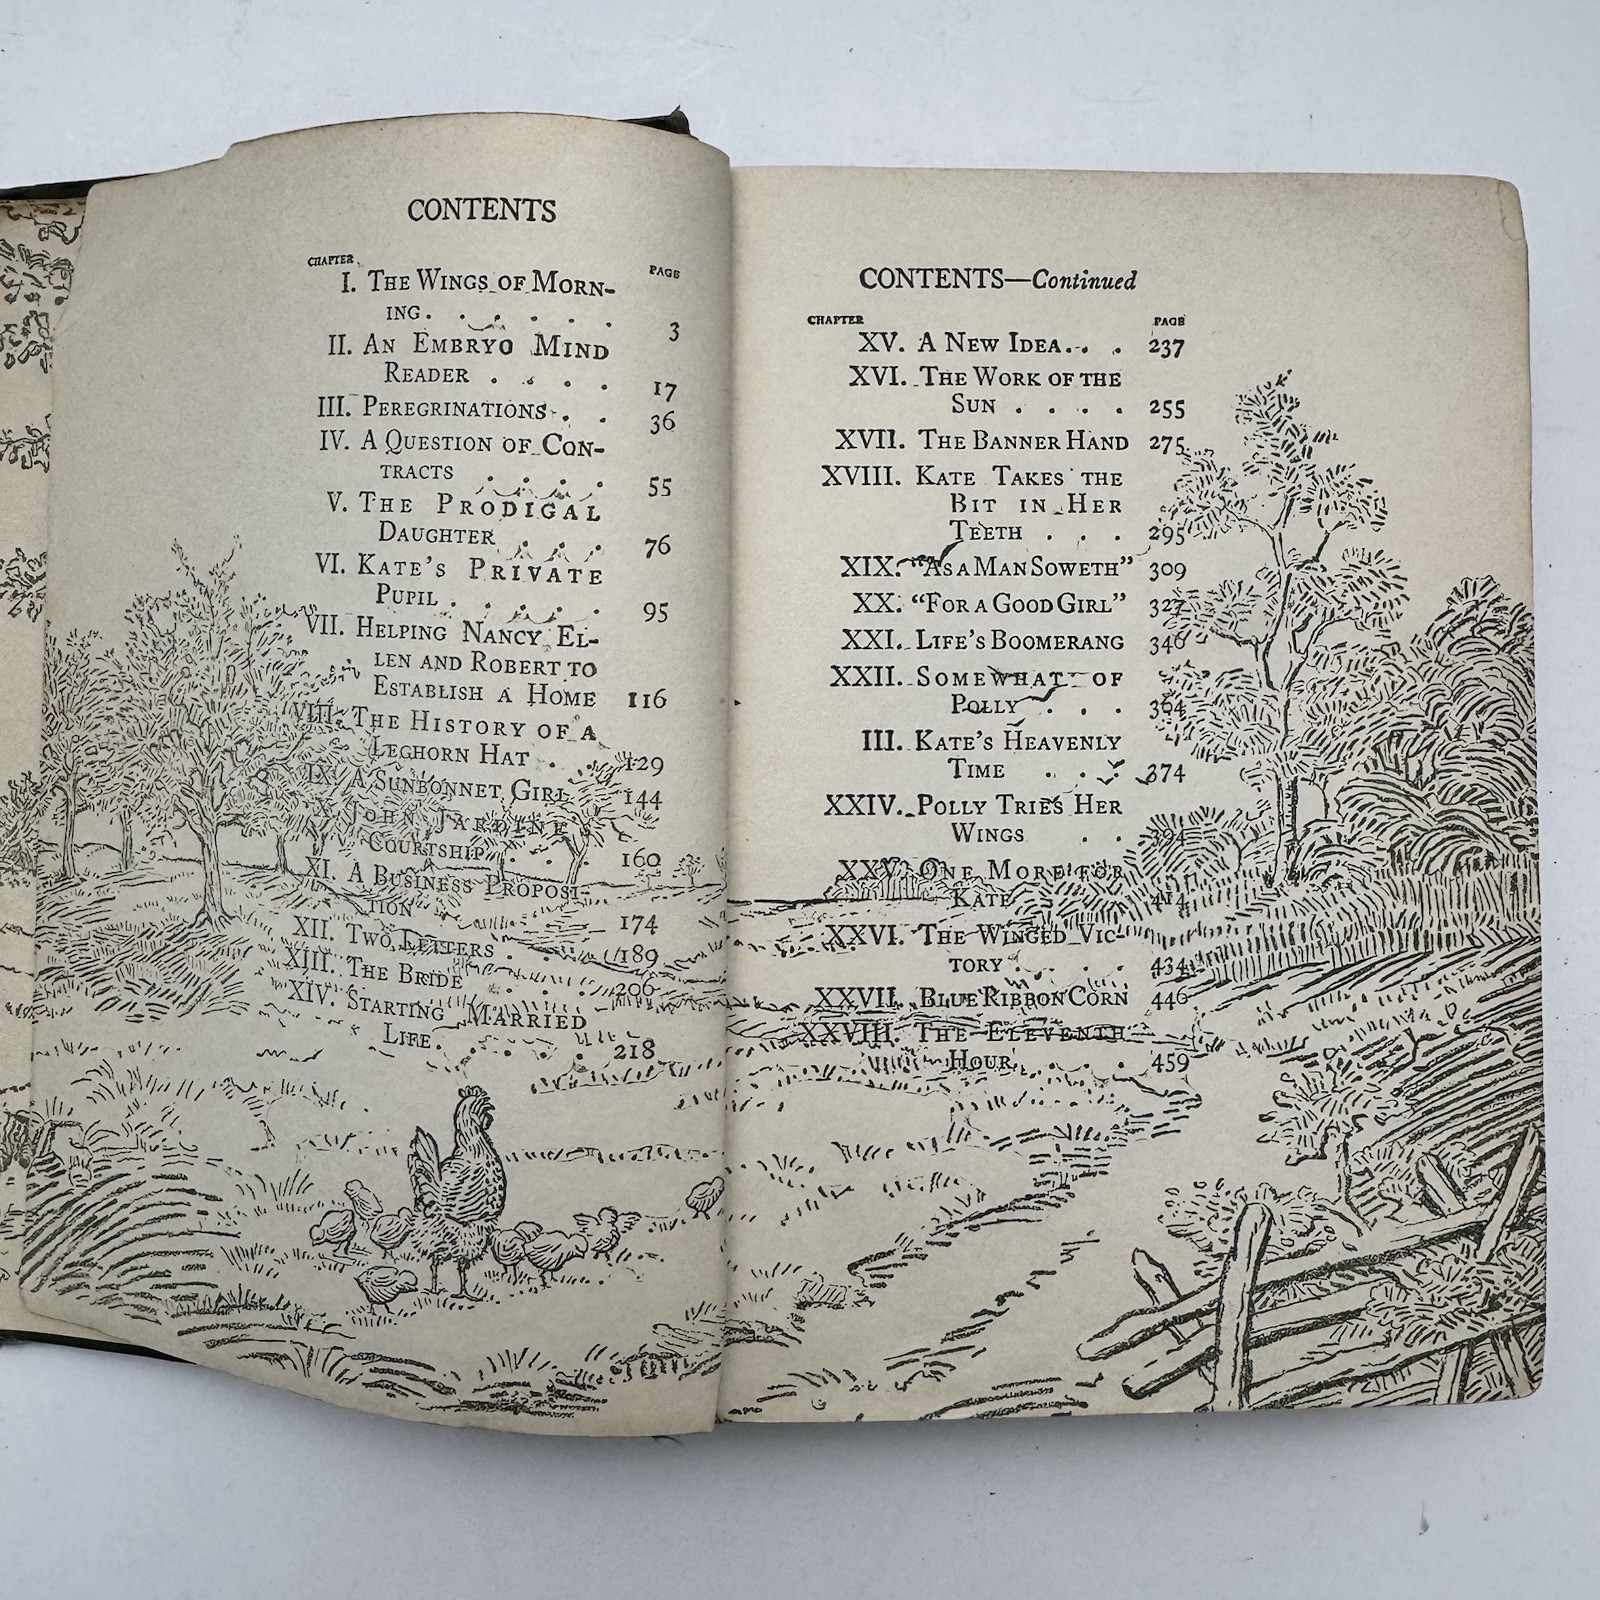 CONTENTS
CHAPTER PAGE
I. THE WINGS OF MORN-
ING . . . . . . 3
II. AN EMBRYO MIND
READER . . . . 17
III. PEREGRINATIONS . . 36
IV. A QUESTION OF CON-
TRACTS . . . . 55
V. THE PRODIGAL
DAUGHTER . . . 76
VI. KATE'S PRIVATE
PUPIL . . . . . 95
VII. HELPING NANCY EL-
LEN AND ROBERT TO
ESTABLISH A HOME 116
VIII. THE HISTORY OF A
LEGHORN HAT . . 129
IX. A SUNBONNET GIRL 144
X. JOHN JARDINE'S
COURTSHIP . . . 160
XI. A BUSINESS PROPOSI-
TION 174
XII. TWO LETTERS . . 189
XIII. THE BRIDE . . 206
XIV. STARTING MARRIED
LIFE . . . . . 218
CONTENTS—Continued
CHAPTER PAGE
XV. A NEW IDEA . . . 237
XVI. THE WORK OF THE
SUN . . . . 255
XVII. THE BANNER HAND 275
XVIII. KATE TAKES THE
BIT IN HER
TEETH . . . 295
XIX. "AS A MAN SOWETH" 309
XX. "FOR A GOOD GIRL" 327
XXI. LIFE'S BOOMERANG 346
XXII. SOMEWHAT OF
POLLY . . . 364
III. KATE'S HEAVENLY
TIME . . . 374
XXIV. POLLY TRIES HER
WINGS . . 394
XXV. ONE MORE FOR
KATE 414
XXVI. THE WINGED VIC-
TORY . . . . 434
XXVII. BLUE RIBBON CORN 446
XXVIII. THE ELEVENTH
HOUR . . . . 459